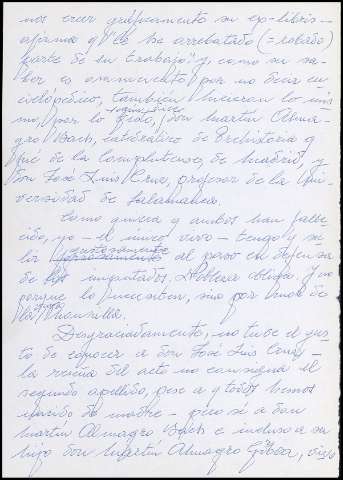 nos crear gráficamente su ex-libris —
afirma q "le ha arrebatado (= robado)
parte de su trabajo" y como su sa-
ber es omnímodo por no decir en-
ciclopédico, también hicieron lo mis-
mo, por lo visto, don Martín Alma-
gro Bach, catedrático de Prehistoria q
fue de la Complutense, de Madrid, y
don José Luis Cruz, profesor de la Uni-
versidad de Salamanca.
Como quiera q ambos han falle-
cido, yo — el único vivo — tengo q sa-
lir gustosamente al paso en defensa
de los imputados. Nobleza obliga. Y no
porque lo necesiten, sino por mor de
la
Desgraciadamente, no tuve el gus-
to de conocer a don José Luis Cruz —
la reseña del acto no consigna el
segundo apellido, pese a q todos hemos
nacido de madre — pero sí a don
Martín Almagro Bach e incluso a su
hijo don Martín Almagro Gorbea, vivo